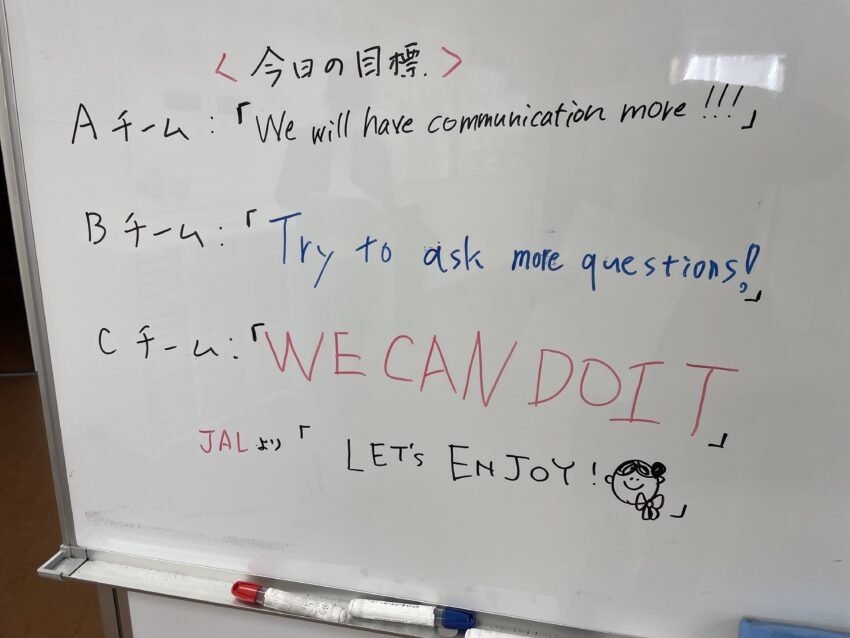 ＜今日の目標.＞
Aチーム:「We will have communication more!!!」
Bチーム:「Try to ask more questions!」
Cチーム:「WE CAN DO IT」
JALより「LET's ENJOY!」